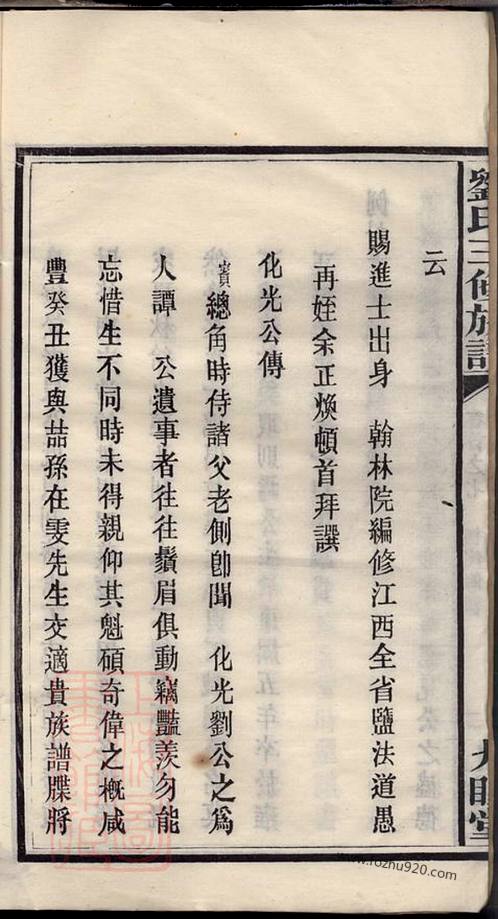 云
賜進士出身　翰林院編修江西全省鹽法道愚
再姪余正煥頓首拜譔
化光公傳
賓總角時侍諸父老側卽聞　化光劉公之爲
人譚　公遺事者往往鬚眉俱動竊豔羨勿能
忘惜生不同時未得親仰其魁碩奇偉之槪咸
豐癸丑獲與喆孫在雯先生交適貴族譜牒將
劉氏三修族譜
www.rozhu920.com